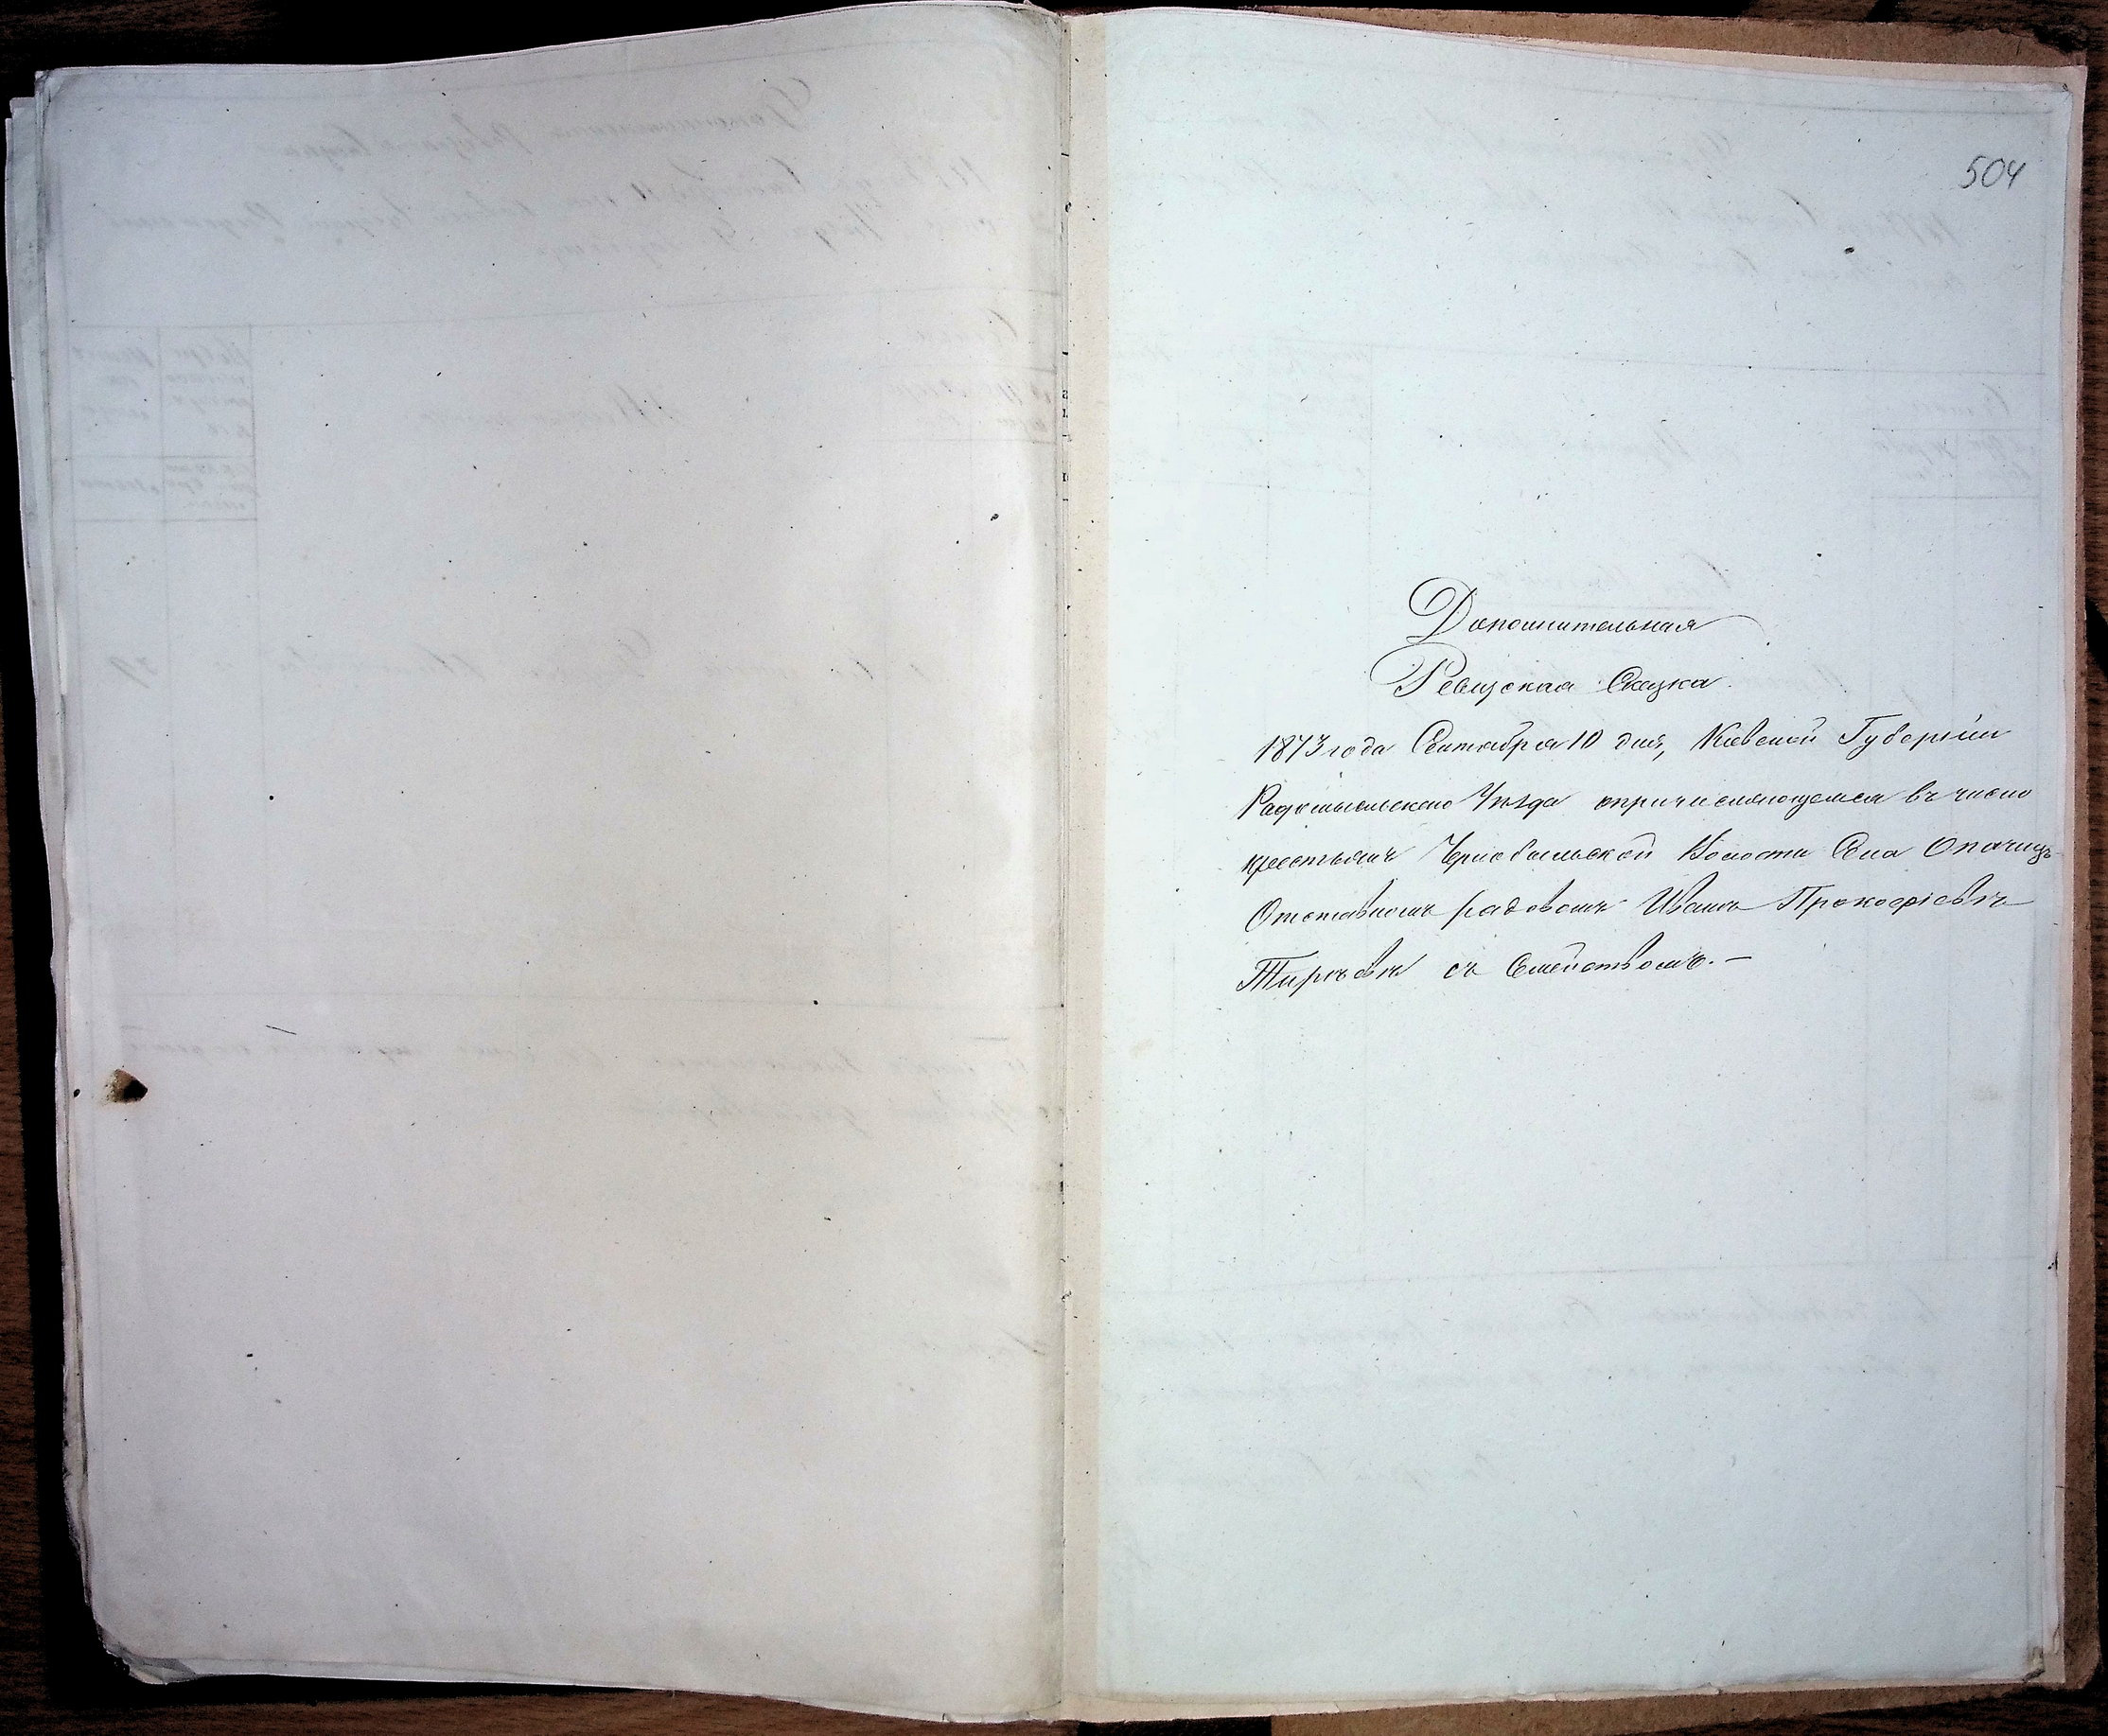 504
Дополнительная
Ревизская Сказка.
1873 года Сентября 10 дня, Киевской Губернии
Радомысльского Уѣзда опричисляющемся въ число
крестьянъ Чернобыльской Волости Села Опачичъ
Отставномъ рядовомъ Иванѣ Прокофіевѣ
съ Семействомъ. —